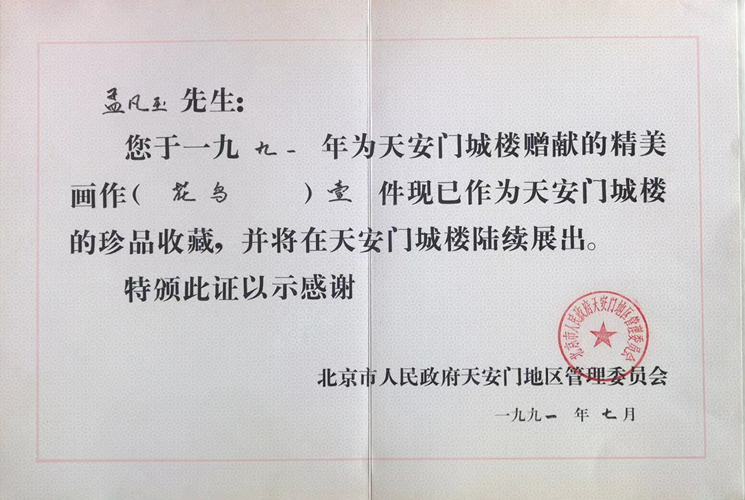 孟凡玉 先生：
您于一九九一年为天安门城楼赠献的精美
画作（花鸟）壹 件现已作为天安门城楼
的珍品收藏，并将在天安门城楼陆续展出。
特颁此证以示感谢
北京市人民政府天安门地区管理委员会
北京市人民政府天安门地区管理委员会
一九九一 年 七 月